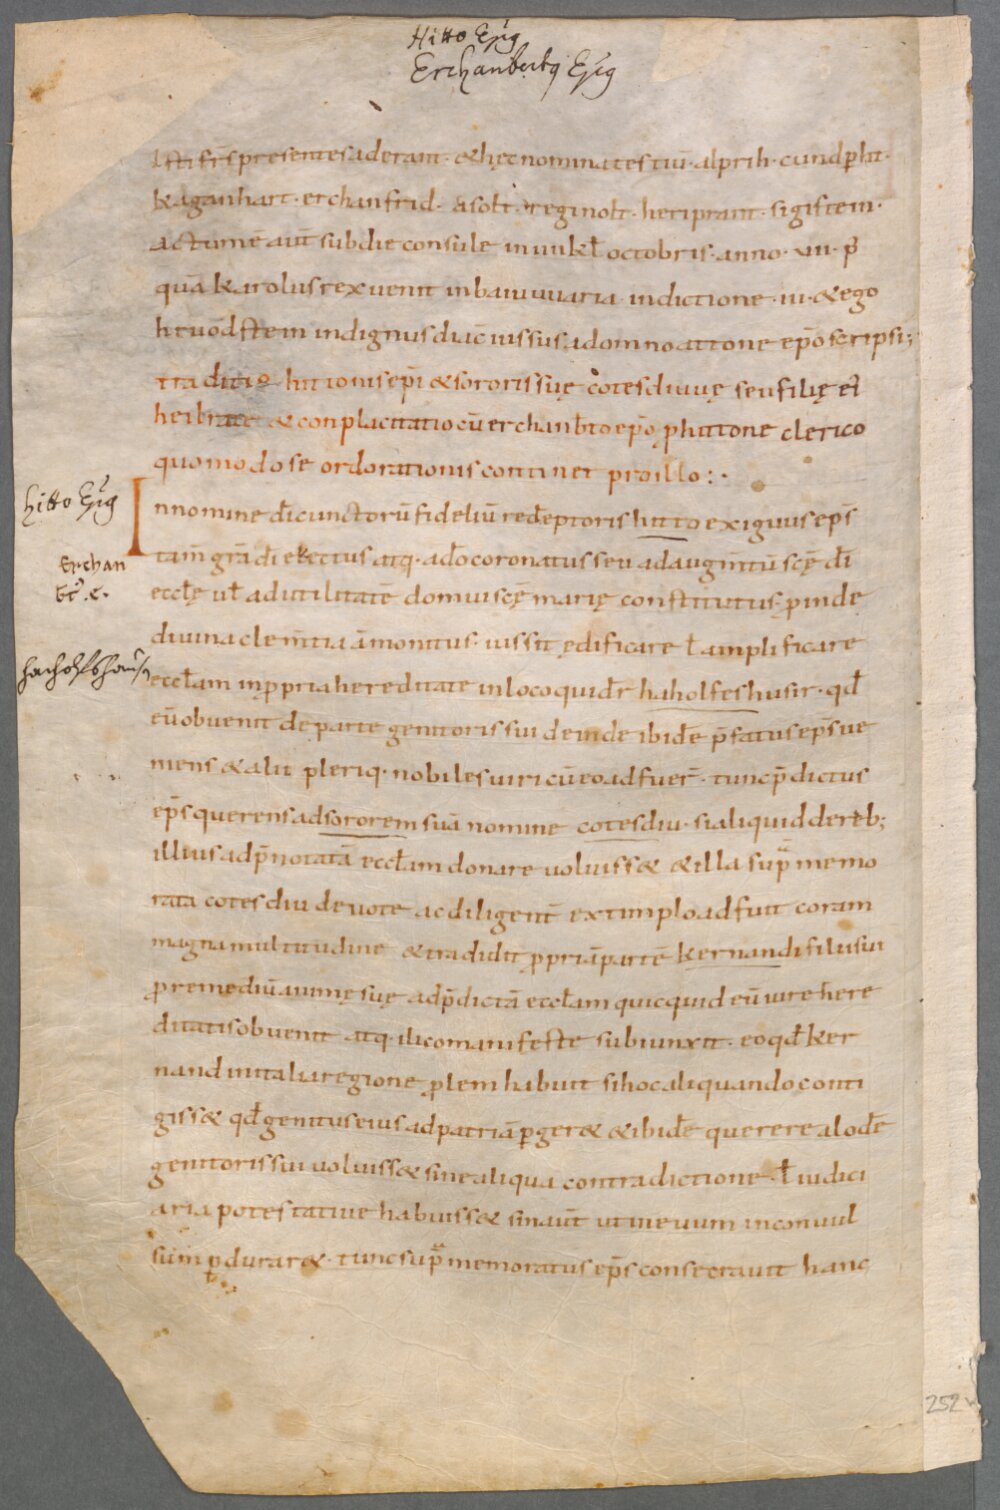 Hitto Epūs
Erchanbertus Epūs
Isti frs presentes aderant · & hęc nomina testiū · alprih · cundp̄ht ·
kaganhart · erchanfrid · asolt · reginolt · heriprant · sigistein ·
actum ē aut̄ sub die consule in uii kł octobris · anno · uii · p̄
quā karolus rex uenit in baiuuuaria indictione · iii · & ego
hrvodstein indignus diac̄ iussus a domno attone ep̄o scripsi;
traditio hittonis ep̄i & sororis suę cotesdiuuę seu filię ei
heilrate & conplacitatio cū erchanb̄to ep̄o p̱ hittone clerico
quomodo se ordo rationis continet pro illo :·
hitto Epūs
In nomine d̄i cunctorū fideliū redēptoris hitto exiguus ep̄s
Erchan
bt̄. E.
tam̄ gr̄a d̄i electus atq · a d̄o coronatus seu ad augm̄tū sc̄ę d̄i
eccłę uł ad utilitatē domui sc̄ę marię constitutus · proinde
diuina clem̄tia āmonitus · iussit ędificare ł amplificare
hacholfshausn
eccłam in ppria hereditate in loco qui dr̄ haholfeshusir · qđ
eū obuenit de parte genitoris sui deinde ibidē p̄fatus ep̄s ue
niens & alii pleriq · nobiles uiri cū eo adfuer̄ · tunc p̄dictus
ep̄s querens ad sororem suā nomine cotesdiu · si aliquid de reb;
illius ad p̄notatā eccłam donare uoluiss& & illa sup̄ memo
rata cotesdiu deuote ac diligent̄ extimplo adfuit coram
magna multitudine & tradidit ppriā partē kernandi filii sui
p̱ remediū animę suę ad p̄dictā eccłam quicquid eū iure here
ditatis obuenit atq · ilico manifeste subiunxit · eo qđ ker
nand in italia regione plem habuit si hoc aliquando conti
giss& qđ genitus eius ad patriā p̱ger& & ibidē querere alodē
genitoris sui uoluiss& sine aliqua contradictione · ł iudici
aria potestatiue habuiss& sin aut̄ ut in euum inconuul
sum p̱durar& · tunc sup̄ memoratus ep̄s consecrauit hanc
252